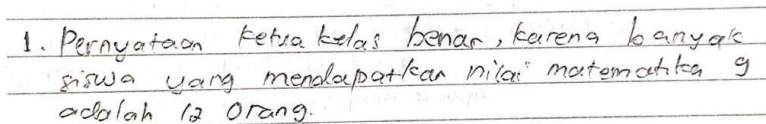 1. Pernyataan ketua kelas benar, karena banyak
siswa yang mendapatkan nilai matematika 9
adalah 12 orang.